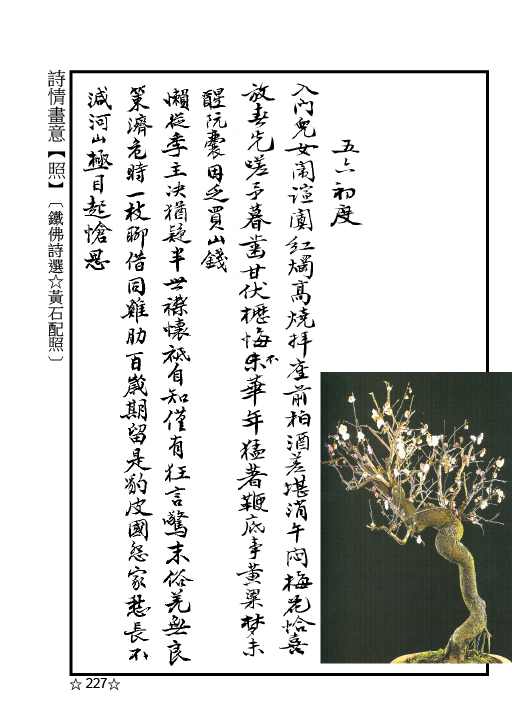 詩情畫意【照】〔鐵佛詩選☆黃石配照〕
五六初度
入門兒女鬧諠闐紅燭高燒拜座前柏酒差堪消午悶梅花恰喜
放春先嗟予暮齒甘伏櫪悔不朱華年猛著鞭底事黃粱梦未
醒阮囊田乏買山錢
懶從季主决猶疑半世襟懷祗自知僅有狂言驚末俗羌無良
策濟危時一枝聊借同雞肋百歲期留是豹皮國怨家愁長不
減河山極目起愴思
☆ 227☆